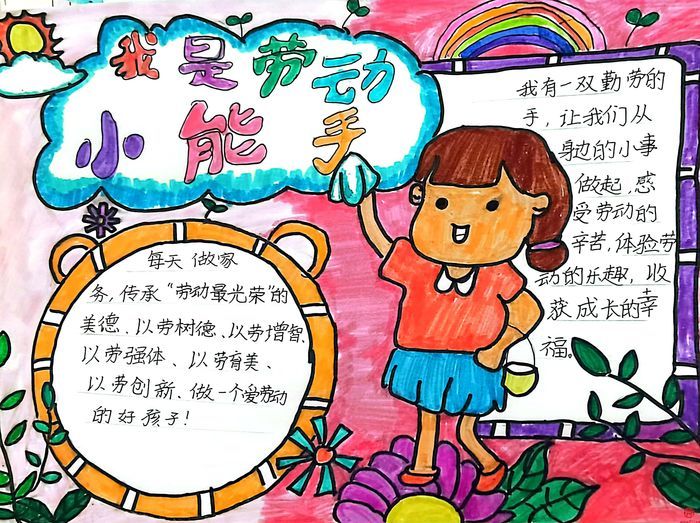 我是劳动
小能手
每天做家
务，传承“劳动最光荣”的
美德、以劳树德、以劳增智、
以劳强体、以劳育美、
以劳创新、做一个爱劳动
的好孩子！
我有一双勤劳的
手，让我们从
身边的小事
做起，感
受劳动的
辛苦，体验劳
动的乐趣，收
获成长的幸
福。